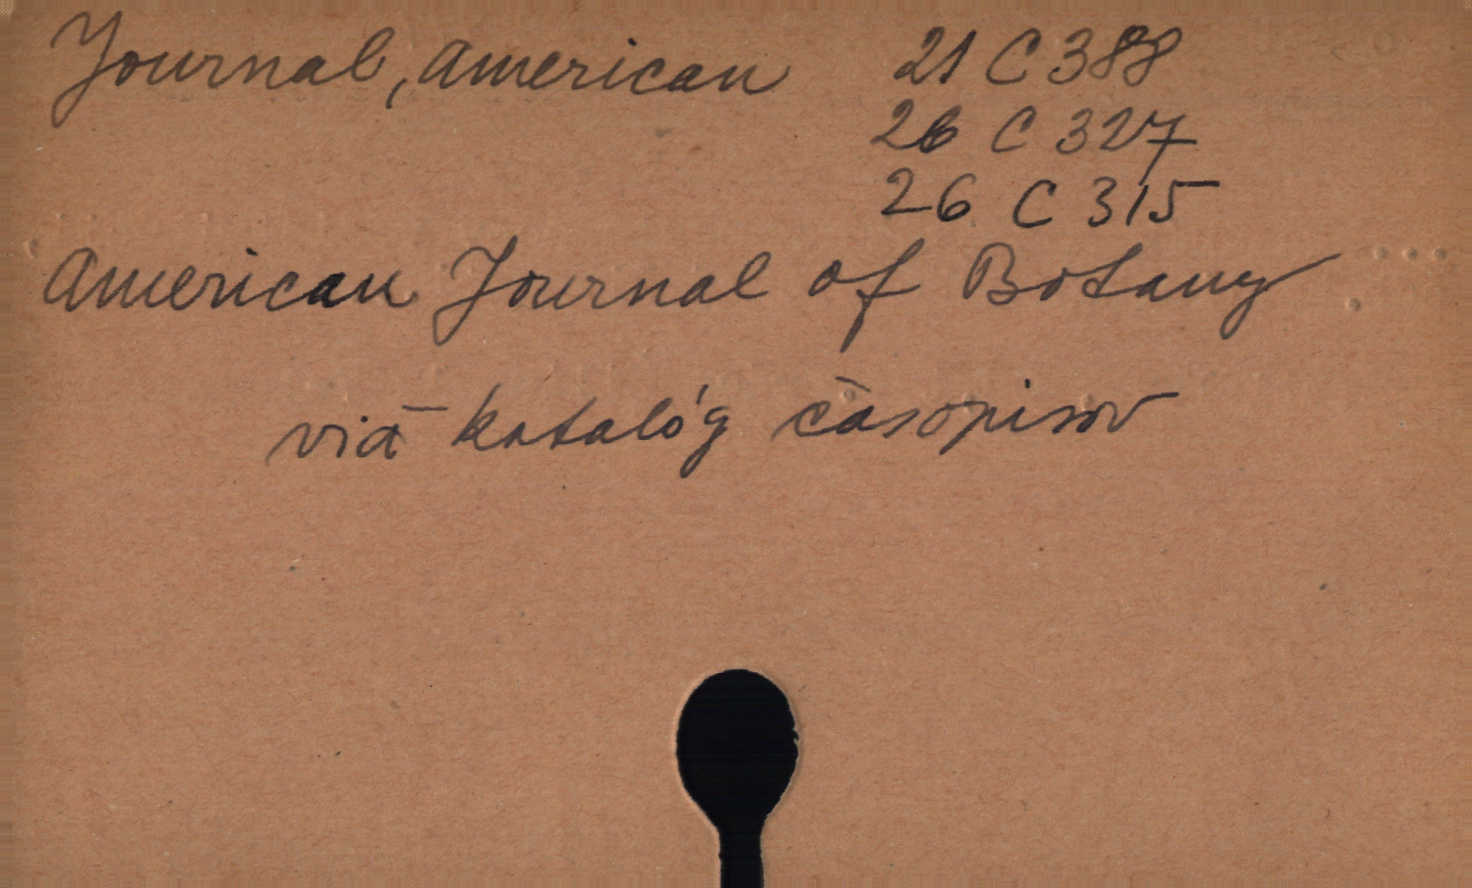 Journal, American 21 C 388
26 C 327
26 C 315
American Journal of Botany
viď katalóg časopisov